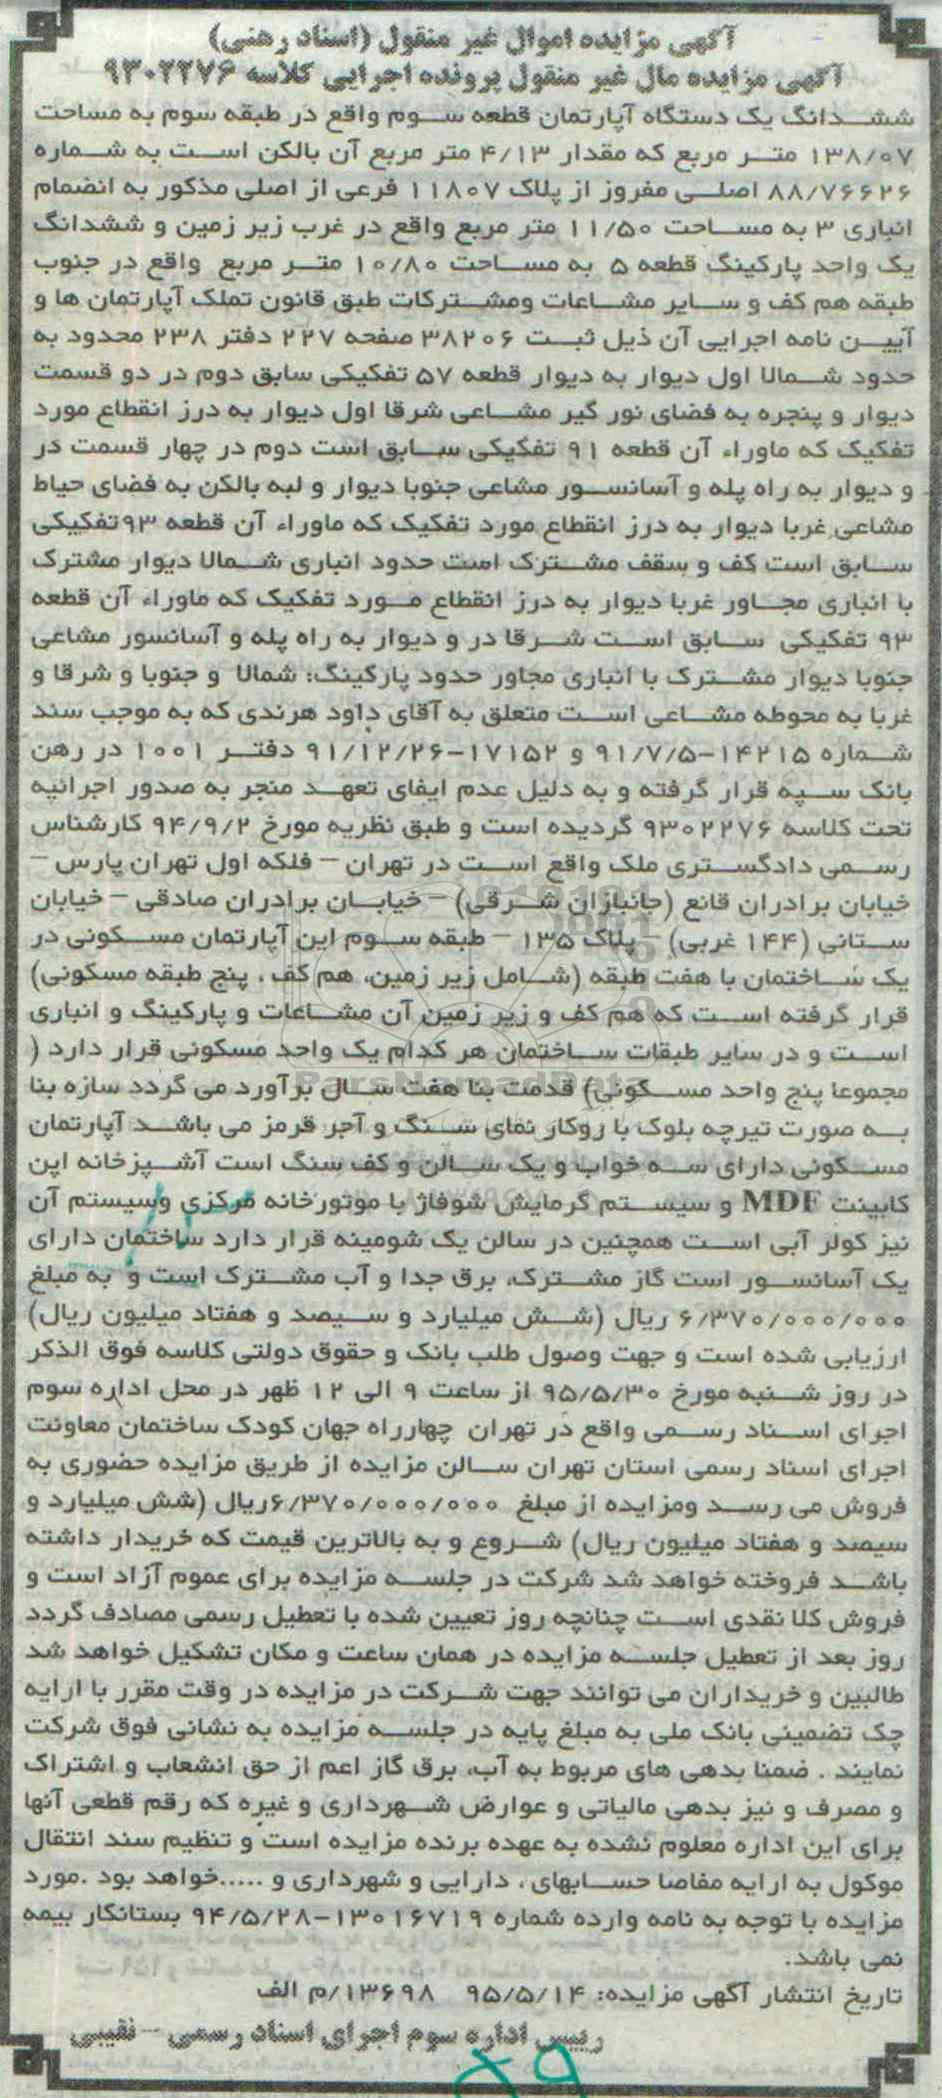 آگهی مزایده اموال غیر منقول (اسناد رهنی)
آگهی مزایده مال غیر منقول پرونده اجرایی کلاسه ۹۳۰۲۲۷۶
ششدانگ یک دستگاه آپارتمان قطعه سوم واقع در طبقه سوم به مساحت
۱۳۸/۰۷ متر مربع که مقدار ۴/۱۳ متر مربع آن بالکن است به شماره
۸۸/۷۶۶۲۶ اصلی مفروز از پلاک ۱۱۸۰۷ فرعی از اصلی مذکور به انضمام
انباری ۳ به مساحت ۱۱/۵۰ متر مربع واقع در غرب زیر زمین و ششدانگ
یک واحد پارکینگ قطعه ۵ به مساحت ۱۰/۸۰ متر مربع واقع در جنوب
طبقه هم کف و سایر مشاعات ومشترکات طبق قانون تملک آپارتمان ها و
آیین نامه اجرایی آن ذیل ثبت ۳۸۲۰۶ صفحه ۲۲۷ دفتر ۲۳۸ محدود به
حدود شمالا اول دیوار به دیوار قطعه ۵۷ تفکیکی سابق دوم در دو قسمت
دیوار و پنجره به فضای نور گیر مشاعی شرقا اول دیوار به درز انقطاع مورد
تفکیک که ماوراء آن قطعه ۹۱ تفکیکی سابق است دوم در چهار قسمت در
و دیوار به راه پله و آسانسور مشاعی جنوبا دیوار و لبه بالکن به فضای حیاط
مشاعی غربا دیوار به درز انقطاع مورد تفکیک که ماوراء آن قطعه ۹۳تفکیکی
سابق است کف و سقف مشترک است حدود انباری شمالا دیوار مشترک
با انباری مجاور غربا دیوار به درز انقطاع مورد تفکیک که ماوراء آن قطعه
۹۳ تفکیکی سابق است شرقا در و دیوار به راه پله و آسانسور مشاعی
جنوبا دیوار مشترک با انباری مجاور حدود پارکینگ: شمالا و جنوبا و شرقا و
غربا به محوطه مشاعی است متعلق به آقای داود هرندی که به موجب سند
شماره ۱۴۲۱۵-۹۱/۷/۵ و ۱۷۱۵۲-۹۱/۱۲/۲۶ دفتر ۱۰۰۱ در رهن
بانک سپه قرار گرفته و به دلیل عدم ایفای تعهد منجر به صدور اجرائیه
تحت کلاسه ۹۳۰۲۲۷۶ گردیده است و طبق نظریه مورخ ۹۴/۹/۲ کارشناس
رسمی دادگستری ملک واقع است در تهران – فلکه اول تهران پارس –
خیابان برادران قانع (جانبازان شرقی) – خیابان برادران صادقی – خیابان
ستانی (۱۴۴ غربی) – پلاک ۱۳۵ – طبقه سوم این آپارتمان مسکونی در
یک ساختمان با هفت طبقه (شامل زیر زمین، هم کف ، پنج طبقه مسکونی)
قرار گرفته است که هم کف و زیر زمین آن مشاعات و پارکینگ و انباری
است و در سایر طبقات ساختمان هر کدام یک واحد مسکونی قرار دارد (
مجموعا پنج واحد مسکونی) قدمت بنا هفت سال برآورد می گردد سازه بنا
به صورت تیرچه بلوک با روکار نمای سنگ و آجر قرمز می باشد آپارتمان
مسکونی دارای سه خواب و یک سالن و کف سنگ است آشپزخانه اپن
کابینت MDF و سیستم گرمایش شوفاژ با موتورخانه مرکزی وسیستم آن
نیز کولر آبی است همچنین در سالن یک شومینه قرار دارد ساختمان دارای
یک آسانسور است گاز مشترک، برق جدا و آب مشترک است و به مبلغ
۶/۳۷۰/۰۰۰/۰۰۰ ریال (شش میلیارد و سیصد و هفتاد میلیون ریال)
ارزیابی شده است و جهت وصول طلب بانک و حقوق دولتی کلاسه فوق الذکر
در روز شنبه مورخ ۹۵/۵/۳۰ از ساعت ۹ الی ۱۲ ظهر در محل اداره سوم
اجرای اسناد رسمی واقع در تهران چهارراه جهان کودک ساختمان معاونت
اجرای اسناد رسمی استان تهران سالن مزایده از طریق مزایده حضوری به
فروش می رسد ومزایده از مبلغ ۶/۳۷۰/۰۰۰/۰۰۰ریال (شش میلیارد و
سیصد و هفتاد میلیون ریال) شروع و به بالاترین قیمت که خریدار داشته
باشد فروخته خواهد شد شرکت در جلسه مزایده برای عموم آزاد است و
فروش کلا نقدی است چنانچه روز تعیین شده با تعطیل رسمی مصادف گردد
روز بعد از تعطیل جلسه مزایده در همان ساعت و مکان تشکیل خواهد شد
طالبین و خریداران می توانند جهت شرکت در مزایده در وقت مقرر با ارایه
چک تضمینی بانک ملی به مبلغ پایه در جلسه مزایده به نشانی فوق شرکت
نمایند . ضمنا بدهی های مربوط به آب، برق گاز اعم از حق انشعاب و اشتراک
و مصرف و نیز بدهی مالیاتی و عوارض شهرداری و غیره که رقم قطعی آنها
برای این اداره معلوم نشده به عهده برنده مزایده است و تنظیم سند انتقال
موکول به ارایه مفاصا حسابهای ، دارایی و شهرداری و .....خواهد بود .مورد
مزایده با توجه به نامه وارده شماره ۱۳۰۱۶۷۱۹-۹۴/۵/۲۸ بستانکار بیمه
نمی باشد.
تاریخ انتشار آگهی مزایده: ۹۵/۵/۱۴ ۱۳۶۹۸/م الف
رییس اداره سوم اجرای اسناد رسمی – نقیبی